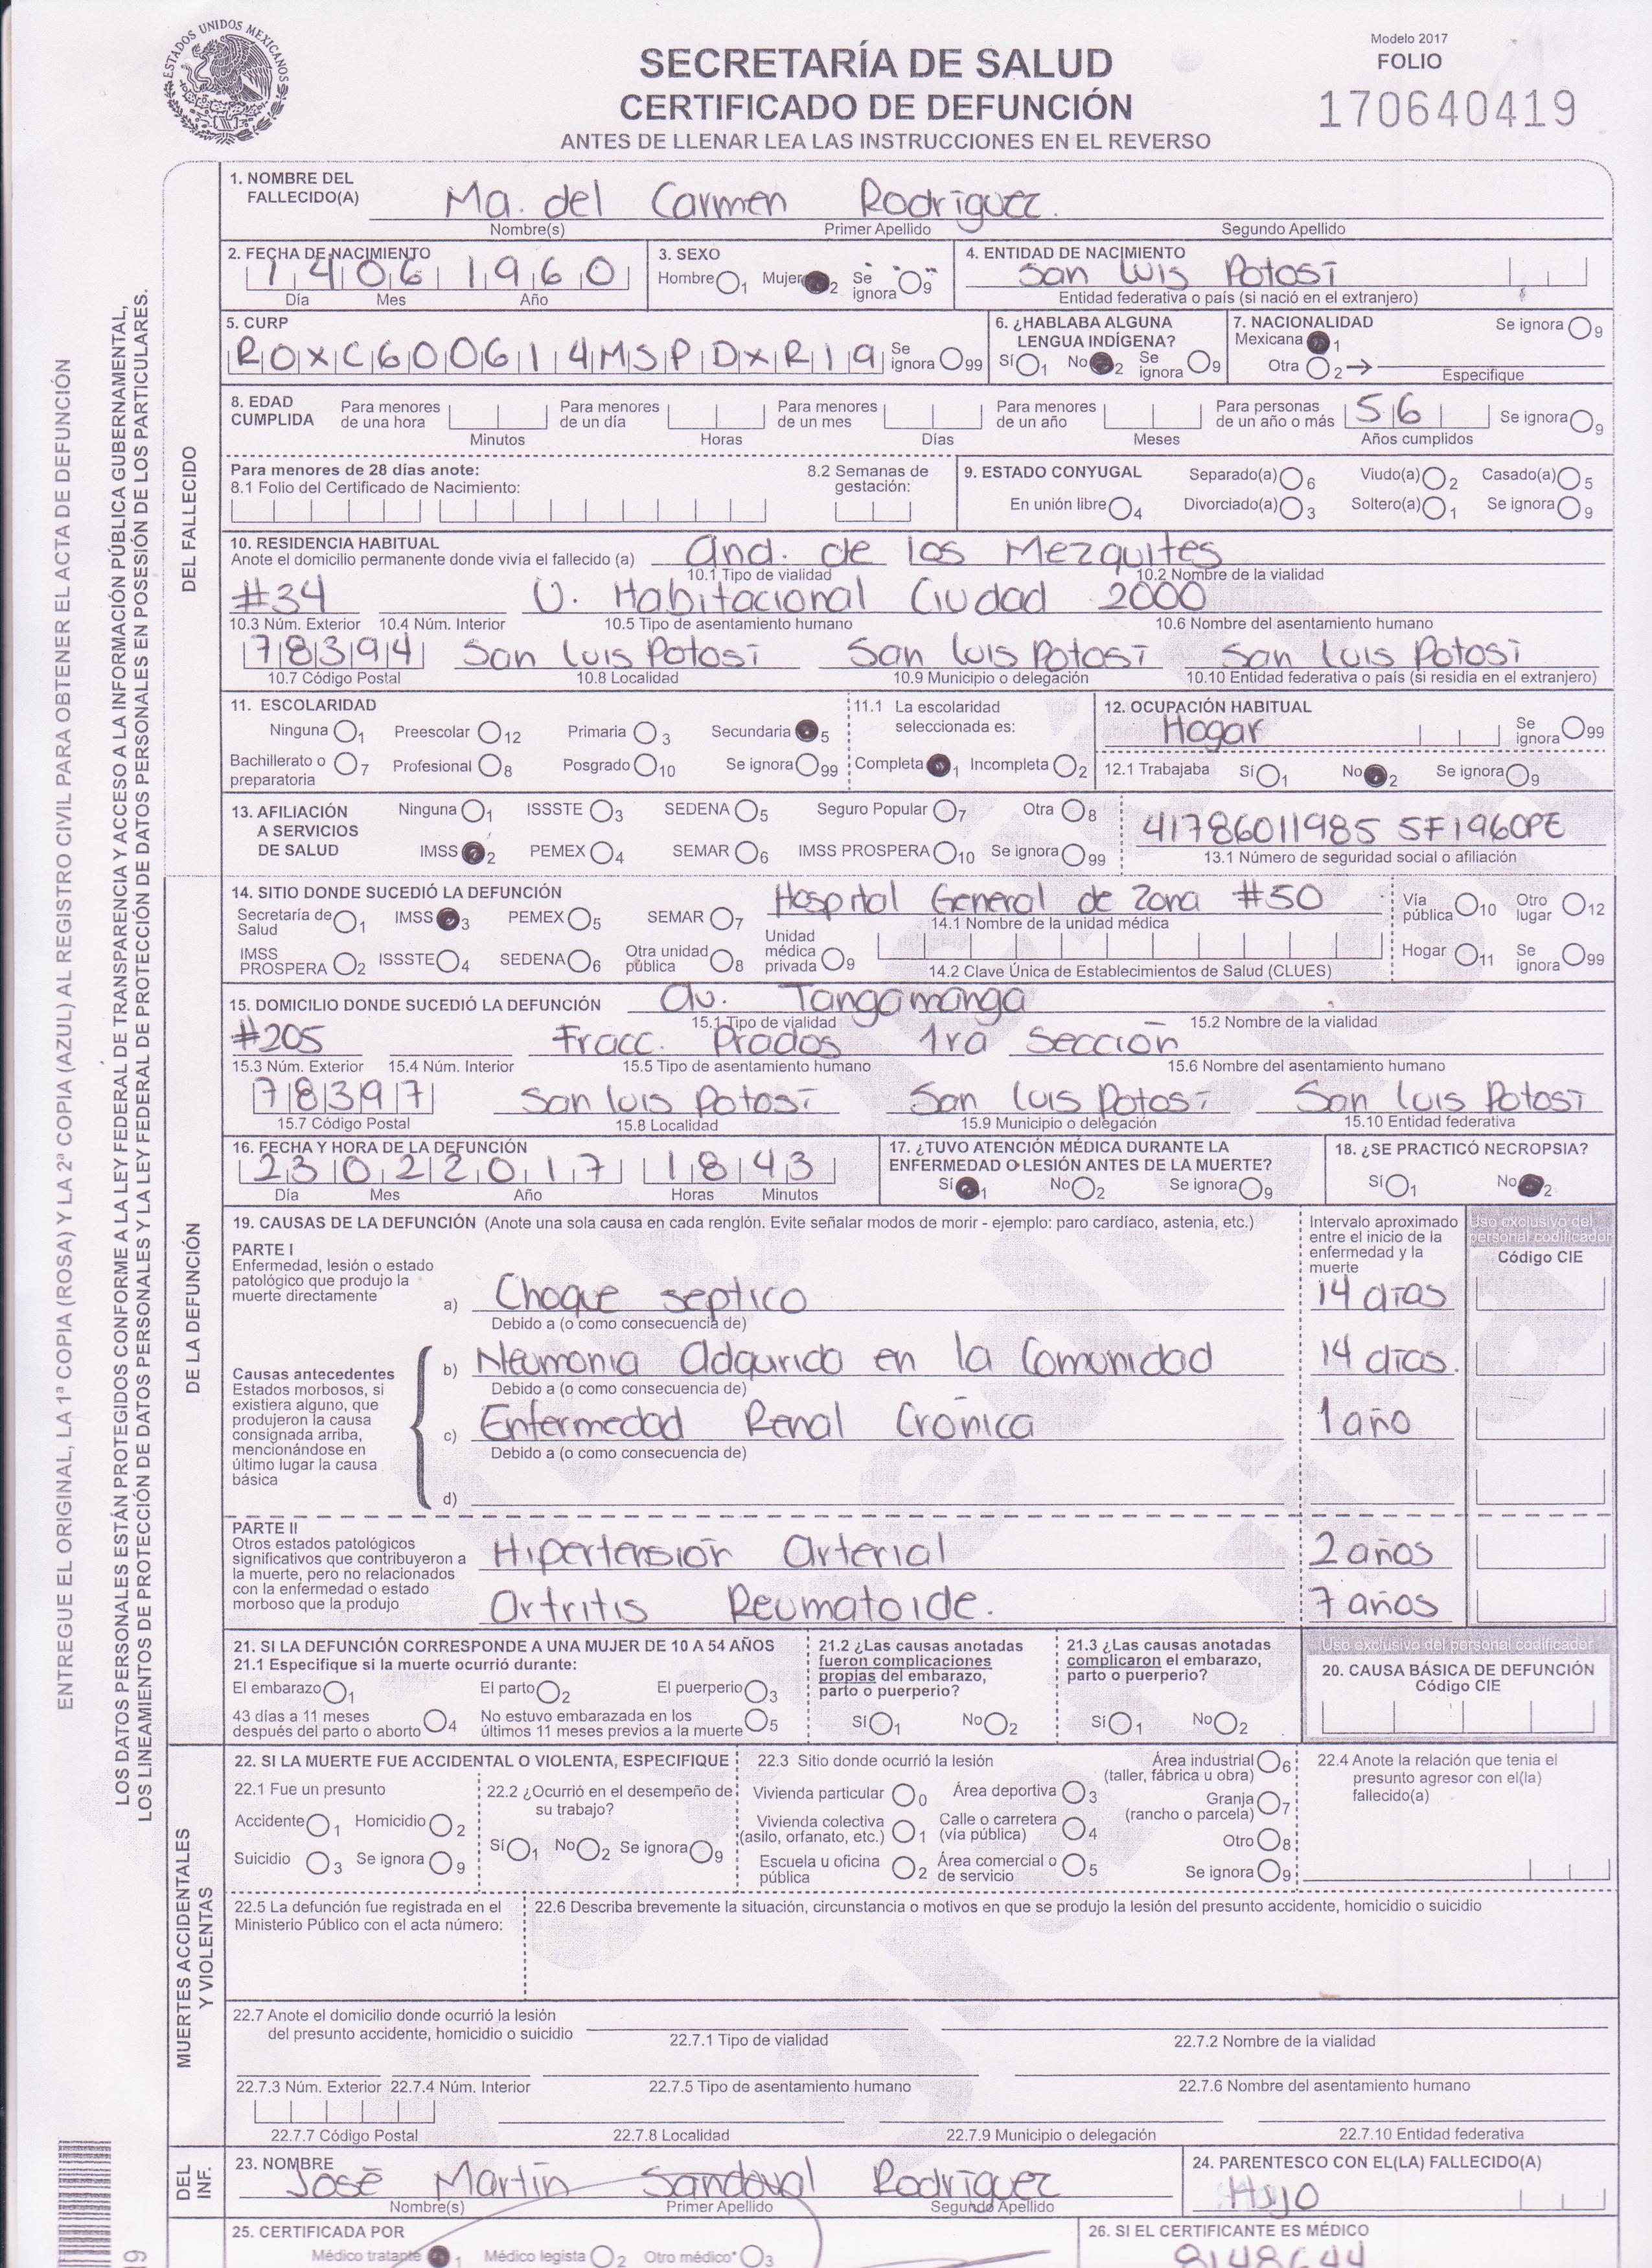 ESTADOS UNIDOS MEXICANOS
SECRETARÍA DE SALUD
CERTIFICADO DE DEFUNCIÓN
ANTES DE LLENAR LEA LAS INSTRUCCIONES EN EL REVERSO
Modelo 2017
FOLIO
170640419
ENTREGUE EL ORIGINAL, LA 1ª COPIA (ROSA) Y LA 2ª COPIA (AZUL) AL REGISTRO CIVIL PARA OBTENER EL ACTA DE DEFUNCIÓN
LOS DATOS PERSONALES ESTÁN PROTEGIDOS CONFORME A LA LEY FEDERAL DE TRANSPARENCIA Y ACCESO A LA INFORMACIÓN PÚBLICA GUBERNAMENTAL,
LOS LINEAMIENTOS DE PROTECCIÓN DE DATOS PERSONALES Y LA LEY FEDERAL DE PROTECCIÓN DE DATOS PERSONALES EN POSESIÓN DE LOS PARTICULARES.
DEL FALLECIDO
1. NOMBRE DEL FALLECIDO(A) Ma. del Carmen Rodriguez.
Nombre(s) Primer Apellido Segundo Apellido
2. FECHA DE NACIMIENTO 14 06 1960
Día Mes Año
3. SEXO
Hombre 1 Mujer 2 Se ignora 9
4. ENTIDAD DE NACIMIENTO
San Luis Potosí
Entidad federativa o país (si nació en el extranjero)
5. CURP
ROXC600614MSPDXR19 Se ignora 99
6. ¿HABLABA ALGUNA LENGUA INDÍGENA?
Sí 1 No 2 Se ignora 9
7. NACIONALIDAD Se ignora 9
Mexicana 1
Otra 2 Especifique
8. EDAD CUMPLIDA
Para menores de una hora Minutos
Para menores de un día Horas
Para menores de un mes Días
Para menores de un año Meses
Para personas de un año o más 56 Años cumplidos Se ignora 9
Para menores de 28 días anote:
8.1 Folio del Certificado de Nacimiento:
8.2 Semanas de gestación:
9. ESTADO CONYUGAL Separado(a) 6 Viudo(a) 2 Casado(a) 5
En unión libre 4 Divorciado(a) 3 Soltero(a) 1 Se ignora 9
10. RESIDENCIA HABITUAL
Anote el domicilio permanente donde vivía el fallecido (a) And. de los Mezquites
10.1 Tipo de vialidad 10.2 Nombre de la vialidad
#34 U. Habitacional Ciudad 2000
10.3 Núm. Exterior 10.4 Núm. Interior 10.5 Tipo de asentamiento humano 10.6 Nombre del asentamiento humano
78394 San Luis Potosí San Luis Potosí San Luis Potosí
10.7 Código Postal 10.8 Localidad 10.9 Municipio o delegación 10.10 Entidad federativa o país (si residia en el extranjero)
11. ESCOLARIDAD
Ninguna 1 Preescolar 12 Primaria 3 Secundaria 5
Bachillerato o preparatoria 7 Profesional 8 Posgrado 10 Se ignora 99
11.1 La escolaridad seleccionada es:
Completa 1 Incompleta 2
12. OCUPACIÓN HABITUAL
Hogar Se ignora 99
12.1 Trabajaba Sí 1 No 2 Se ignora 9
13. AFILIACIÓN A SERVICIOS DE SALUD
Ninguna 1 ISSSTE 3 SEDENA 5 Seguro Popular 7 Otra 8
IMSS 2 PEMEX 4 SEMAR 6 IMSS PROSPERA 10 Se ignora 99
41786011985 5F1960PE
13.1 Número de seguridad social o afiliación
DE LA DEFUNCIÓN
14. SITIO DONDE SUCEDIÓ LA DEFUNCIÓN
Secretaría de Salud 1 IMSS 3 PEMEX 5 SEMAR 7
IMSS PROSPERA 2 ISSSTE 4 SEDENA 6 Otra unidad pública 8 Unidad médica privada 9
Hospital General de Zona #50
14.1 Nombre de la unidad médica
14.2 Clave Única de Establecimientos de Salud (CLUES)
Vía pública 10 Otro lugar 12
Hogar 11 Se ignora 99
15. DOMICILIO DONDE SUCEDIÓ LA DEFUNCIÓN Av. Tangamanga
15.1 Tipo de vialidad 15.2 Nombre de la vialidad
#205 Fracc. Prados 1ra Sección
15.3 Núm. Exterior 15.4 Núm. Interior 15.5 Tipo de asentamiento humano 15.6 Nombre del asentamiento humano
78397 San Luis Potosí San Luis Potosí San Luis Potosí
15.7 Código Postal 15.8 Localidad 15.9 Municipio o delegación 15.10 Entidad federativa
16. FECHA Y HORA DE LA DEFUNCIÓN
23 02 2017 18 43
Día Mes Año Horas Minutos
17. ¿TUVO ATENCIÓN MÉDICA DURANTE LA ENFERMEDAD O LESIÓN ANTES DE LA MUERTE?
Sí 1 No 2 Se ignora 9
18. ¿SE PRACTICÓ NECROPSIA?
Sí 1 No 2
19. CAUSAS DE LA DEFUNCIÓN (Anote una sola causa en cada renglón. Evite señalar modos de morir - ejemplo: paro cardíaco, astenia, etc.)
Intervalo aproximado entre el inicio de la enfermedad y la muerte
Uso exclusivo del personal codificador
Código CIE
PARTE I
Enfermedad, lesión o estado patológico que produjo la muerte directamente
a) Choque septico 14 días
Debido a (o como consecuencia de)
Causas antecedentes
Estados morbosos, si existiera alguno, que produjeron la causa consignada arriba, mencionándose en último lugar la causa básica
b) Neumonia Adquirida en la Comunidad 14 días.
Debido a (o como consecuencia de)
c) Enfermedad Renal Crónica 1 año
Debido a (o como consecuencia de)
d)
PARTE II
Otros estados patológicos significativos que contribuyeron a la muerte, pero no relacionados con la enfermedad o estado morboso que la produjo
Hipertensión Arterial 2 años
Artritis Reumatoide. 7 años
21. SI LA DEFUNCIÓN CORRESPONDE A UNA MUJER DE 10 A 54 AÑOS
21.1 Especifique si la muerte ocurrió durante:
El embarazo 1 El parto 2 El puerperio 3
43 días a 11 meses después del parto o aborto 4 No estuvo embarazada en los últimos 11 meses previos a la muerte 5
21.2 ¿Las causas anotadas fueron complicaciones propias del embarazo, parto o puerperio?
Sí 1 No 2
21.3 ¿Las causas anotadas complicaron el embarazo, parto o puerperio?
Sí 1 No 2
Uso exclusivo del personal codificador
20. CAUSA BÁSICA DE DEFUNCIÓN
Código CIE
MUERTES ACCIDENTALES Y VIOLENTAS
22. SI LA MUERTE FUE ACCIDENTAL O VIOLENTA, ESPECIFIQUE
22.1 Fue un presunto
Accidente 1 Homicidio 2
Suicidio 3 Se ignora 9
22.2 ¿Ocurrió en el desempeño de su trabajo?
Sí 1 No 2 Se ignora 9
22.3 Sitio donde ocurrió la lesión
Vivienda particular 0 Área deportiva 3 Área industrial (taller, fábrica u obra) 6
Vivienda colectiva (asilo, orfanato, etc.) 1 Calle o carretera (vía pública) 4 Granja (rancho o parcela) 7
Escuela u oficina pública 2 Área comercial o de servicio 5 Otro 8
Se ignora 9
22.4 Anote la relación que tenia el presunto agresor con el(la) fallecido(a)
22.5 La defunción fue registrada en el Ministerio Público con el acta número:
22.6 Describa brevemente la situación, circunstancia o motivos en que se produjo la lesión del presunto accidente, homicidio o suicidio
22.7 Anote el domicilio donde ocurrió la lesión del presunto accidente, homicidio o suicidio
22.7.1 Tipo de vialidad 22.7.2 Nombre de la vialidad
22.7.3 Núm. Exterior 22.7.4 Núm. Interior 22.7.5 Tipo de asentamiento humano 22.7.6 Nombre del asentamiento humano
22.7.7 Código Postal 22.7.8 Localidad 22.7.9 Municipio o delegación 22.7.10 Entidad federativa
DEL INF.
23. NOMBRE
José Martín Sandoval Rodríguez
Nombre(s) Primer Apellido Segundo Apellido
24. PARENTESCO CON EL(LA) FALLECIDO(A)
Hijo
25. CERTIFICADA POR
Médico tratante 1 Médico legista 2 Otro médico* 3
26. SI EL CERTIFICANTE ES MÉDICO
8148644